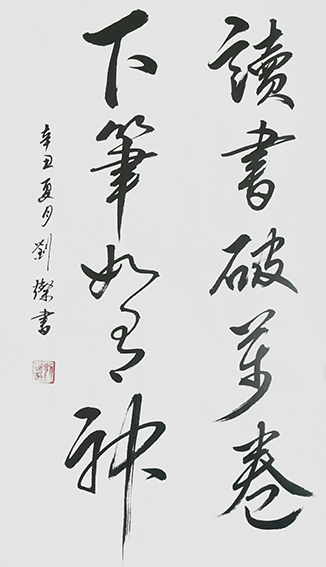 讀書破萬卷
下筆如有神
辛丑夏月劉燦書